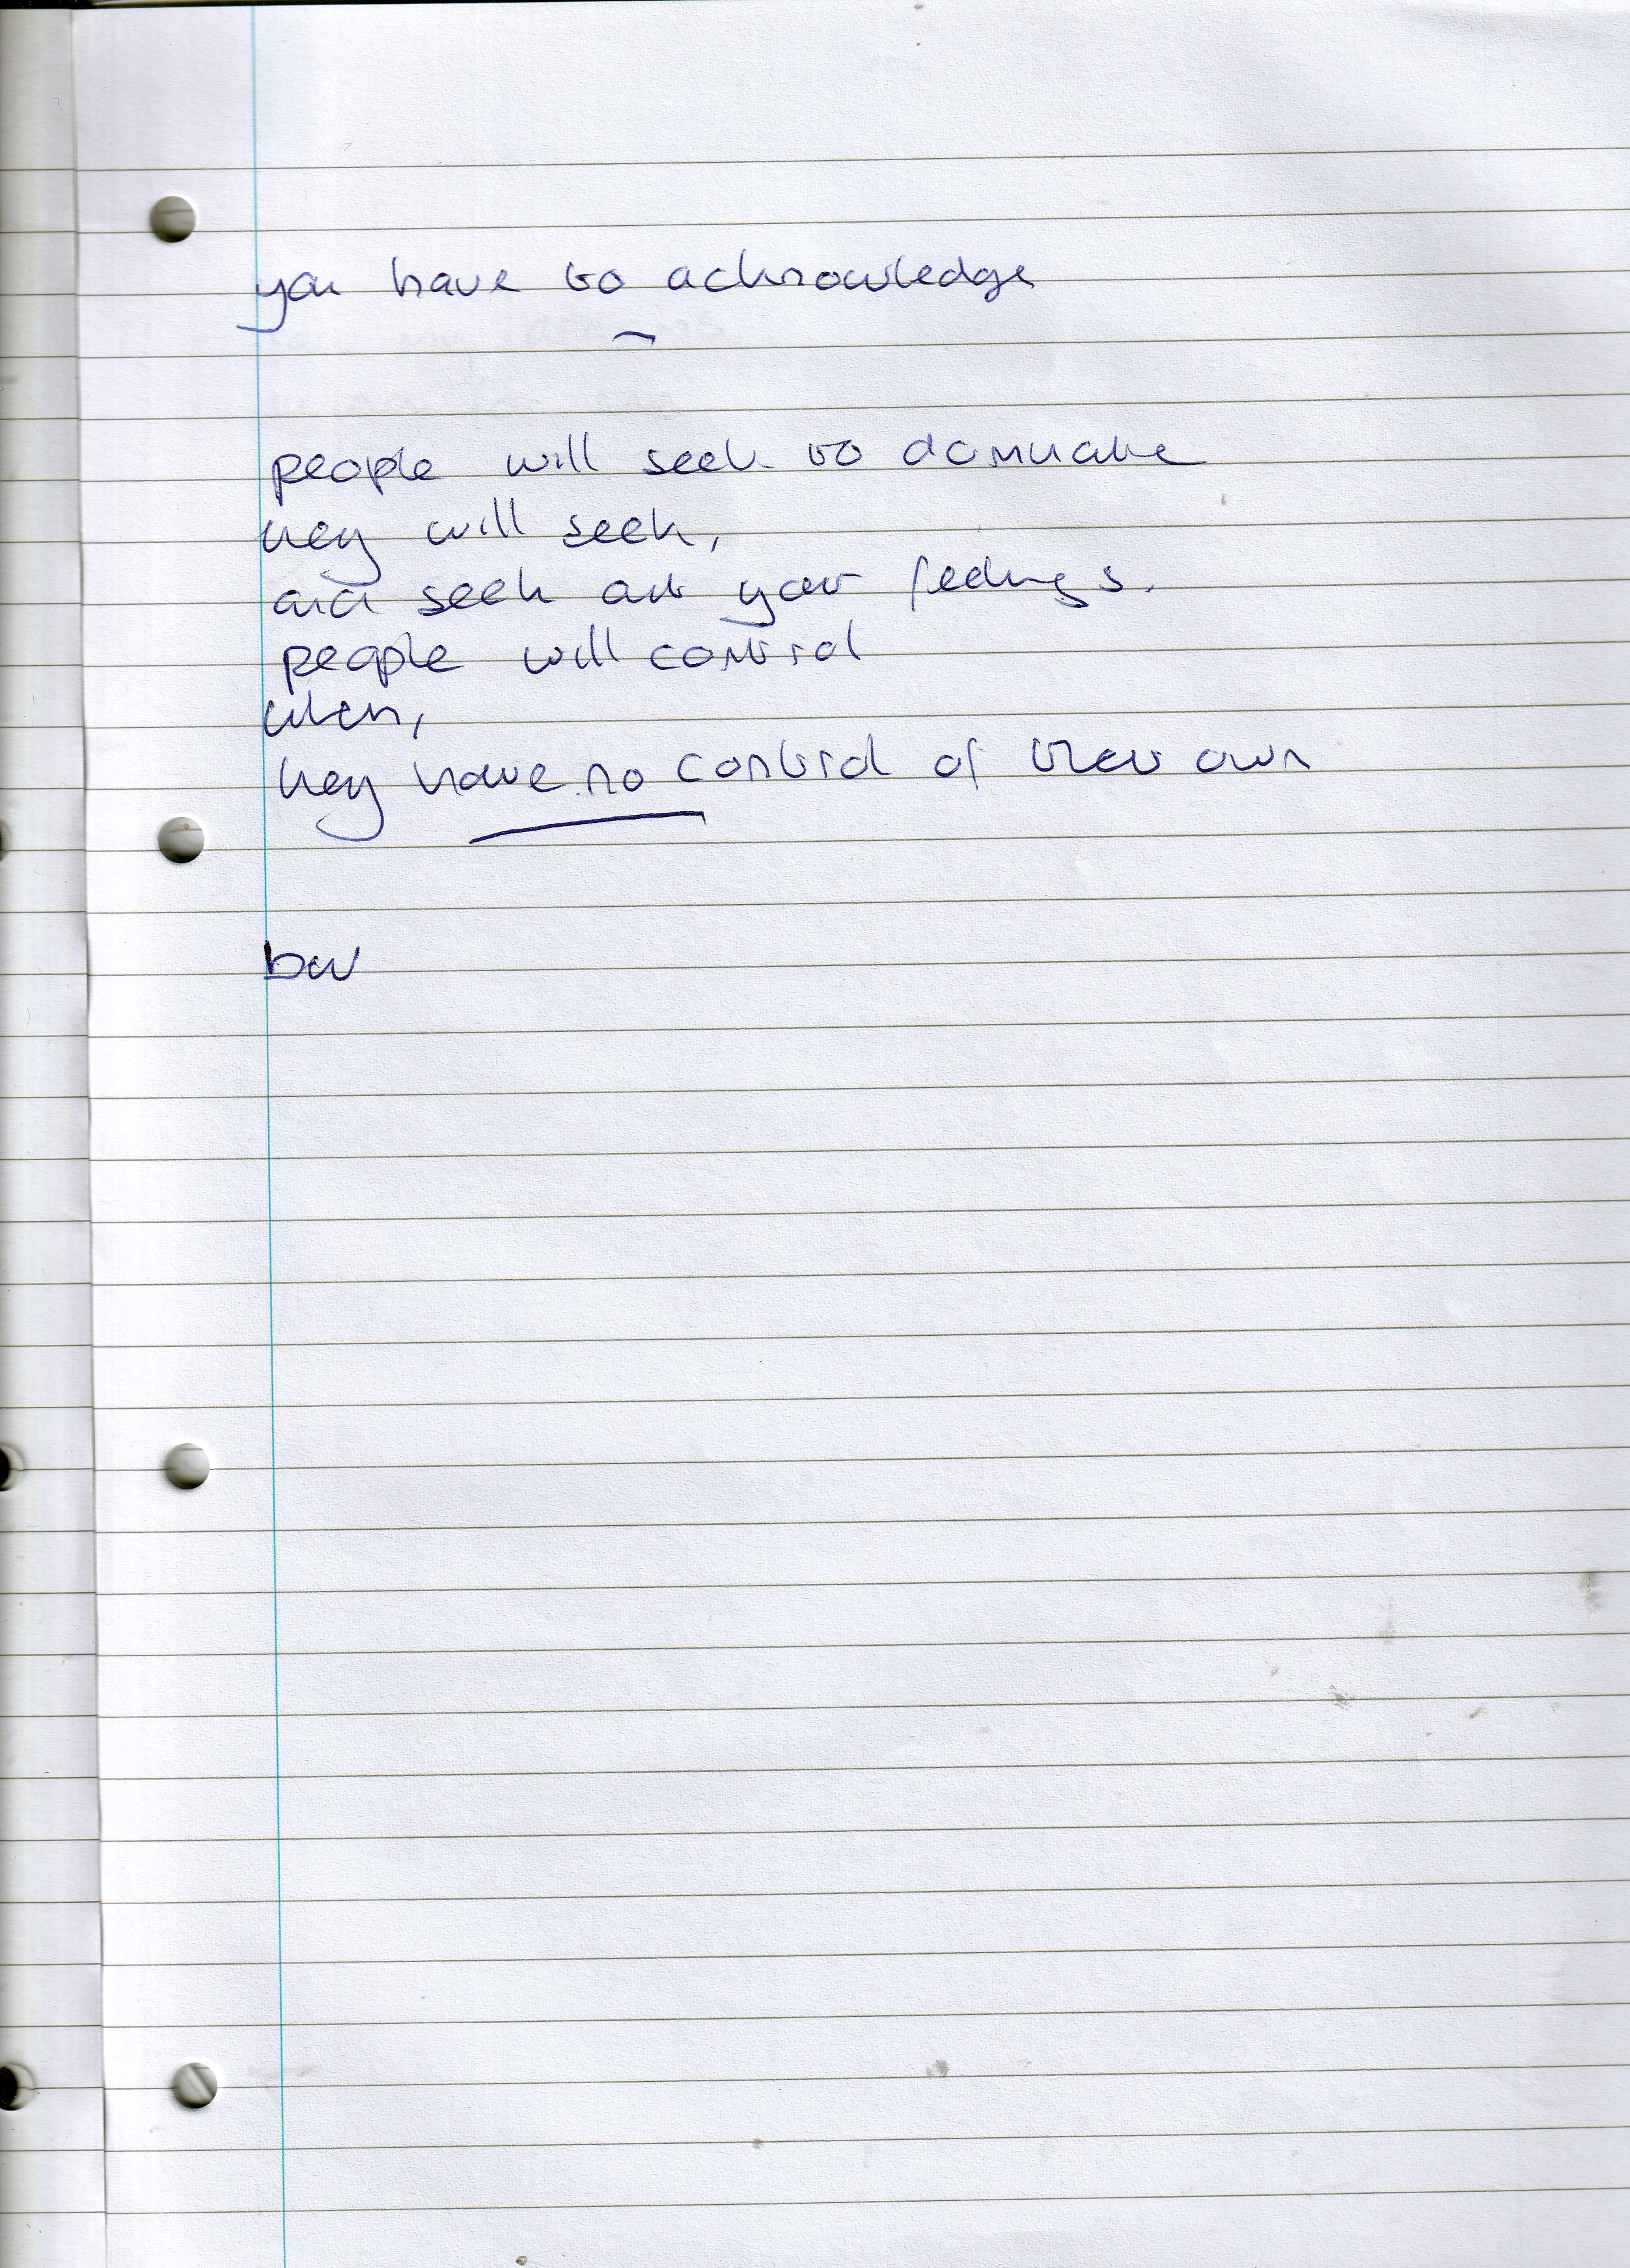 you have to acknowledge
people will seek to dominate
they will seek,
and seek out your feelings.
people will control
when,
they have no control of their own
bw